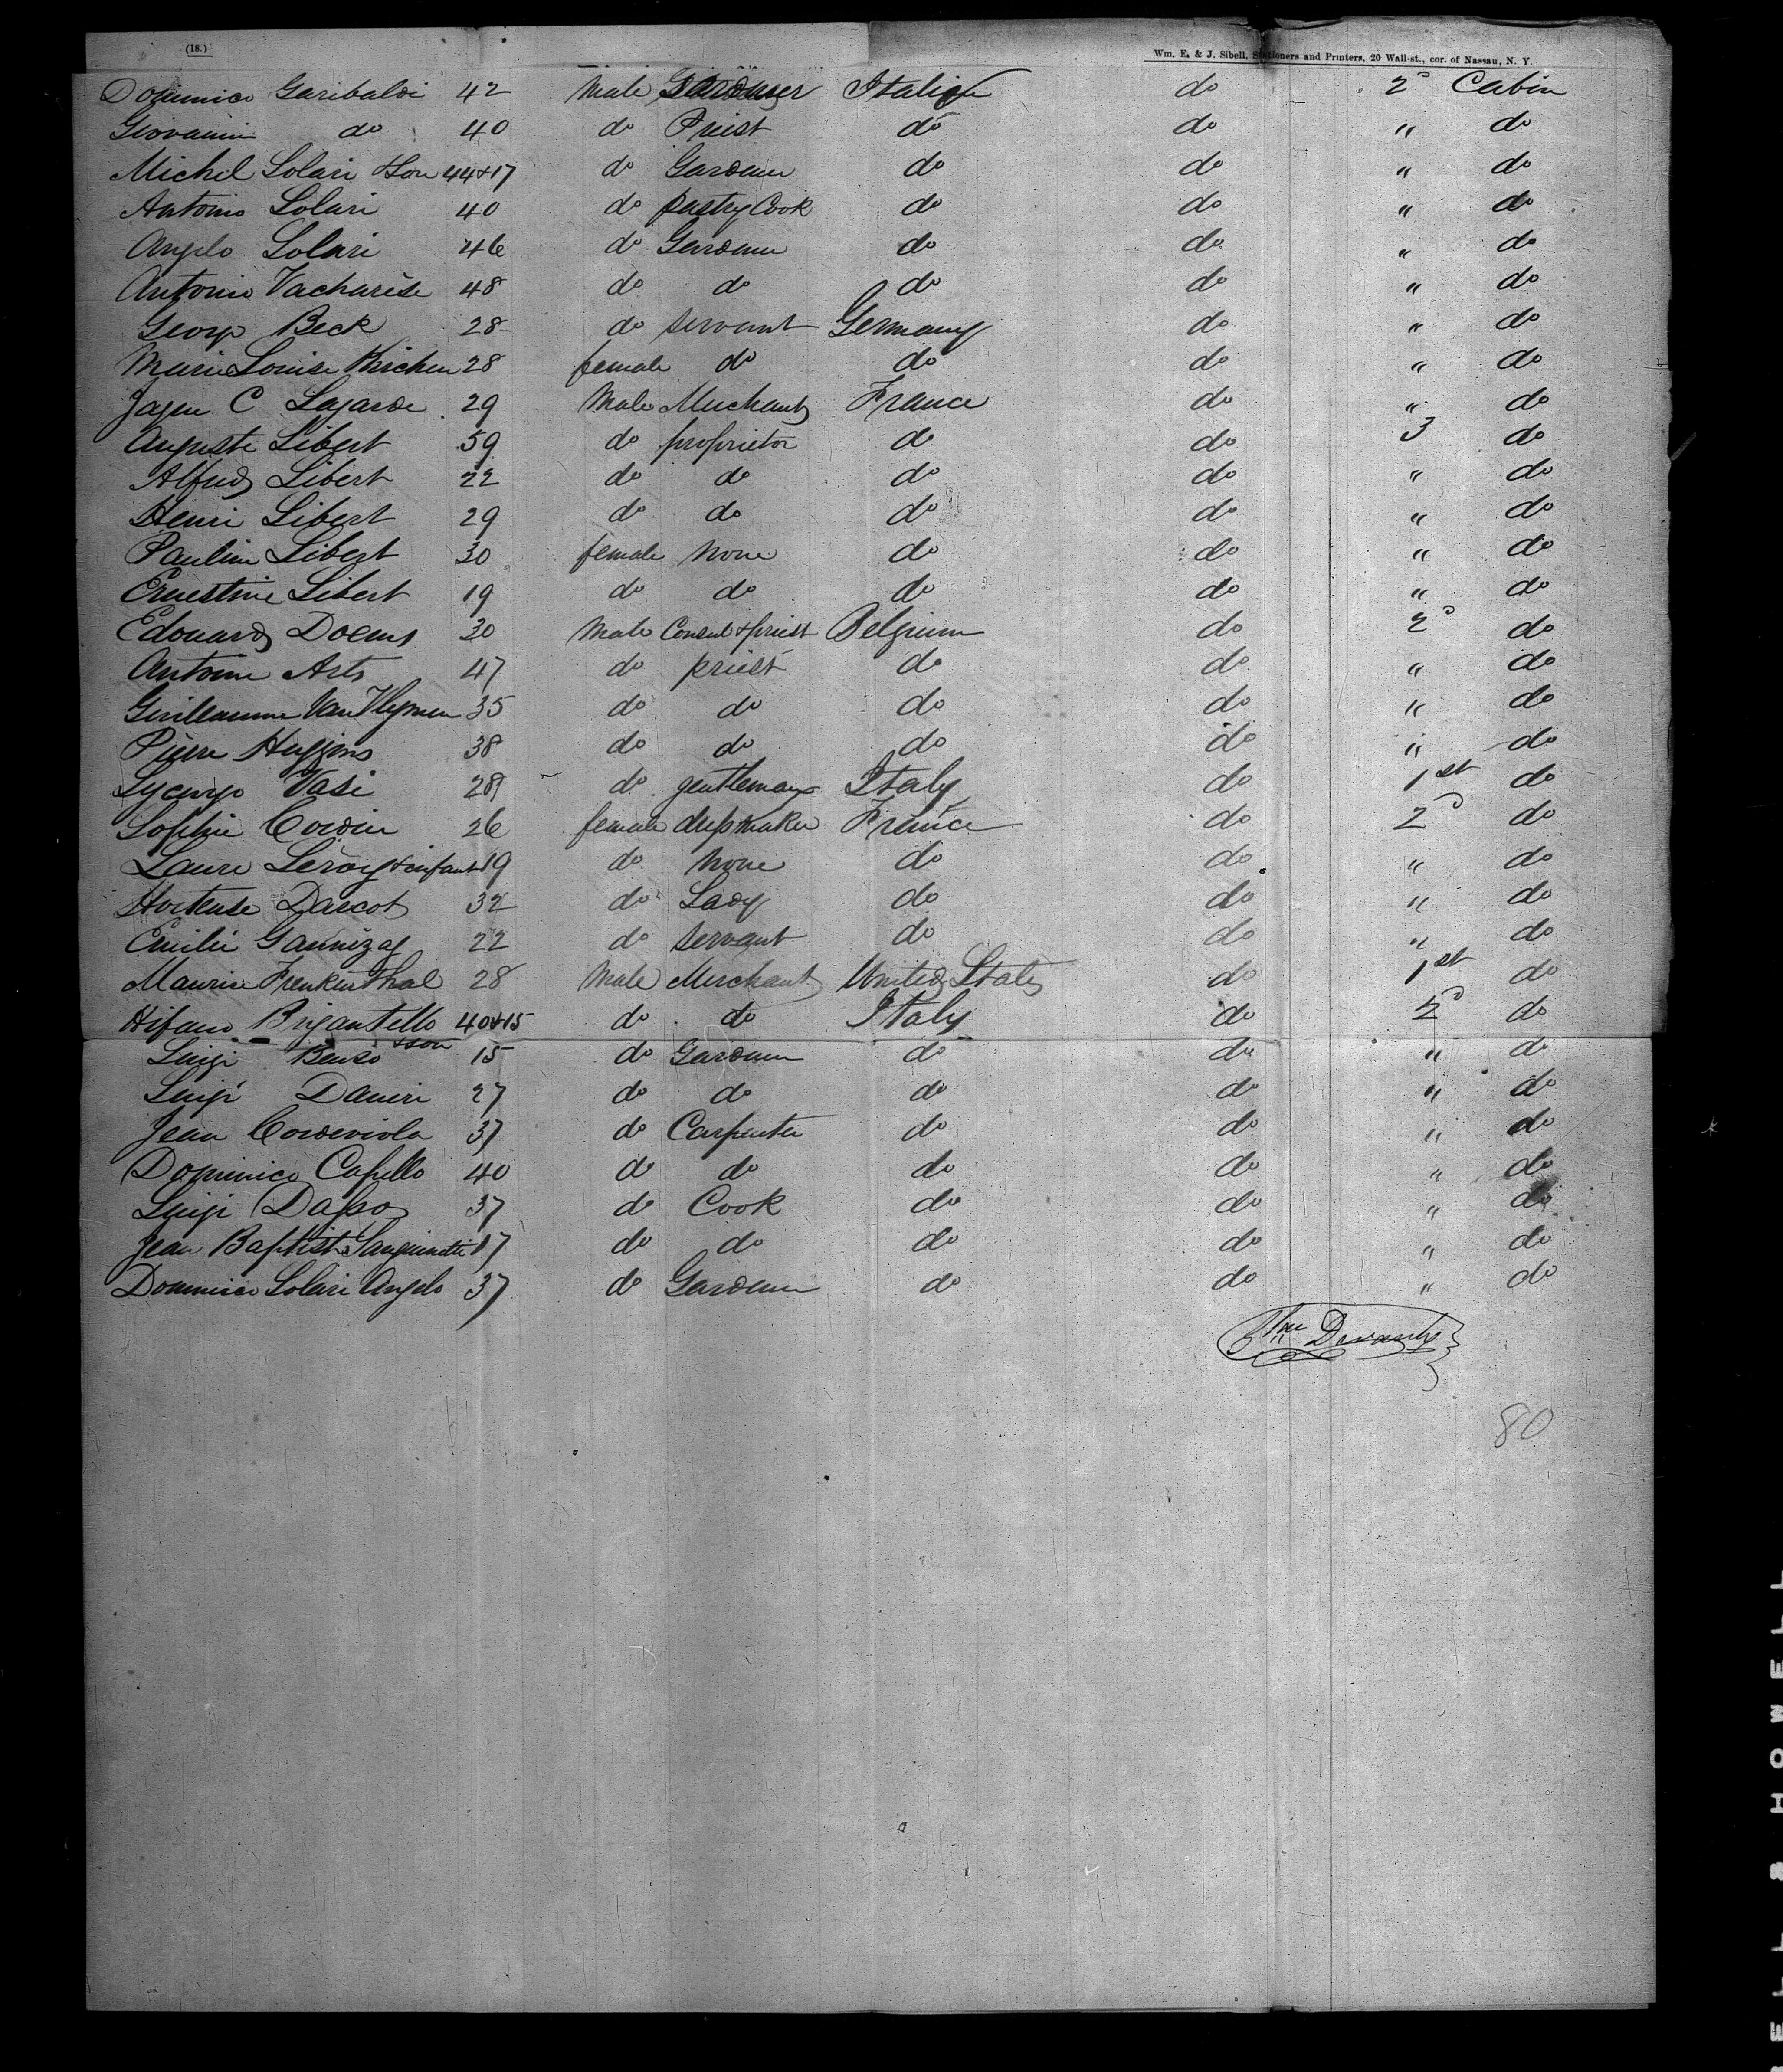 (18.)
Wm. E. & J. Sibell, Stationers and Printers, 20 Wall-st., cor. of Nassau, N. Y.
Dominico Garibaldi 42 Male Gardener do 2d Cabin
Giovanni do 40 do Priest do do " do
Michel Solari & Son 44&17 do Gardener do do " do
Antonio Solari 40 do pastry Cook do do " do
Angelo Solari 46 do Gardener do do " do
Antonio Vacharese 48 do do do do " do
Georg Beck 28 do servant Germany do " do
Marie Louise 28 female do do do " do
C Lagarde 29 Male Merchant France do " do
Auguste Libert 59 do proprietor do do 3 do
Alfred Libert 22 do do do do " do
Henri Libert 29 do do do do " do
Pauline Libert 30 female none do do " do
Ernestine Libert 19 do do do do " do
Edouard 30 Male Consul & priest Belgium do 2d do
Antoine Arts 47 do priest do do " do
Guilleaume Van 35 do do do do " do
Pierre Huggins 38 do do do do " do
Vasi 28 do gentleman Italy do 1st do
Sophie Cordier 26 female dressmaker France do 2d do
Laure Leroy & infant 19 do none do do " do
Hortense Darcot 32 do Lady do do " do
Emilie 22 do servant do do " do
Maurice Frenkenthal 28 Male Merchant United States do 1st do
Brigantello & son 40&15 do do Italy do 2d do
Luigi 15 do Gardener do do " do
Luigi Daneri 27 do do do do " do
Jean Cordeviola 37 do Carpenter do do " do
Dominico Capello 40 do do do do " do
Luigi Dasso 37 do Cook do do " do
Jean Baptiste Sanguinetti 17 do do do do " do
Dominico Solari Angelo 37 do Gardener do do " do
80
BELL & HOWELL